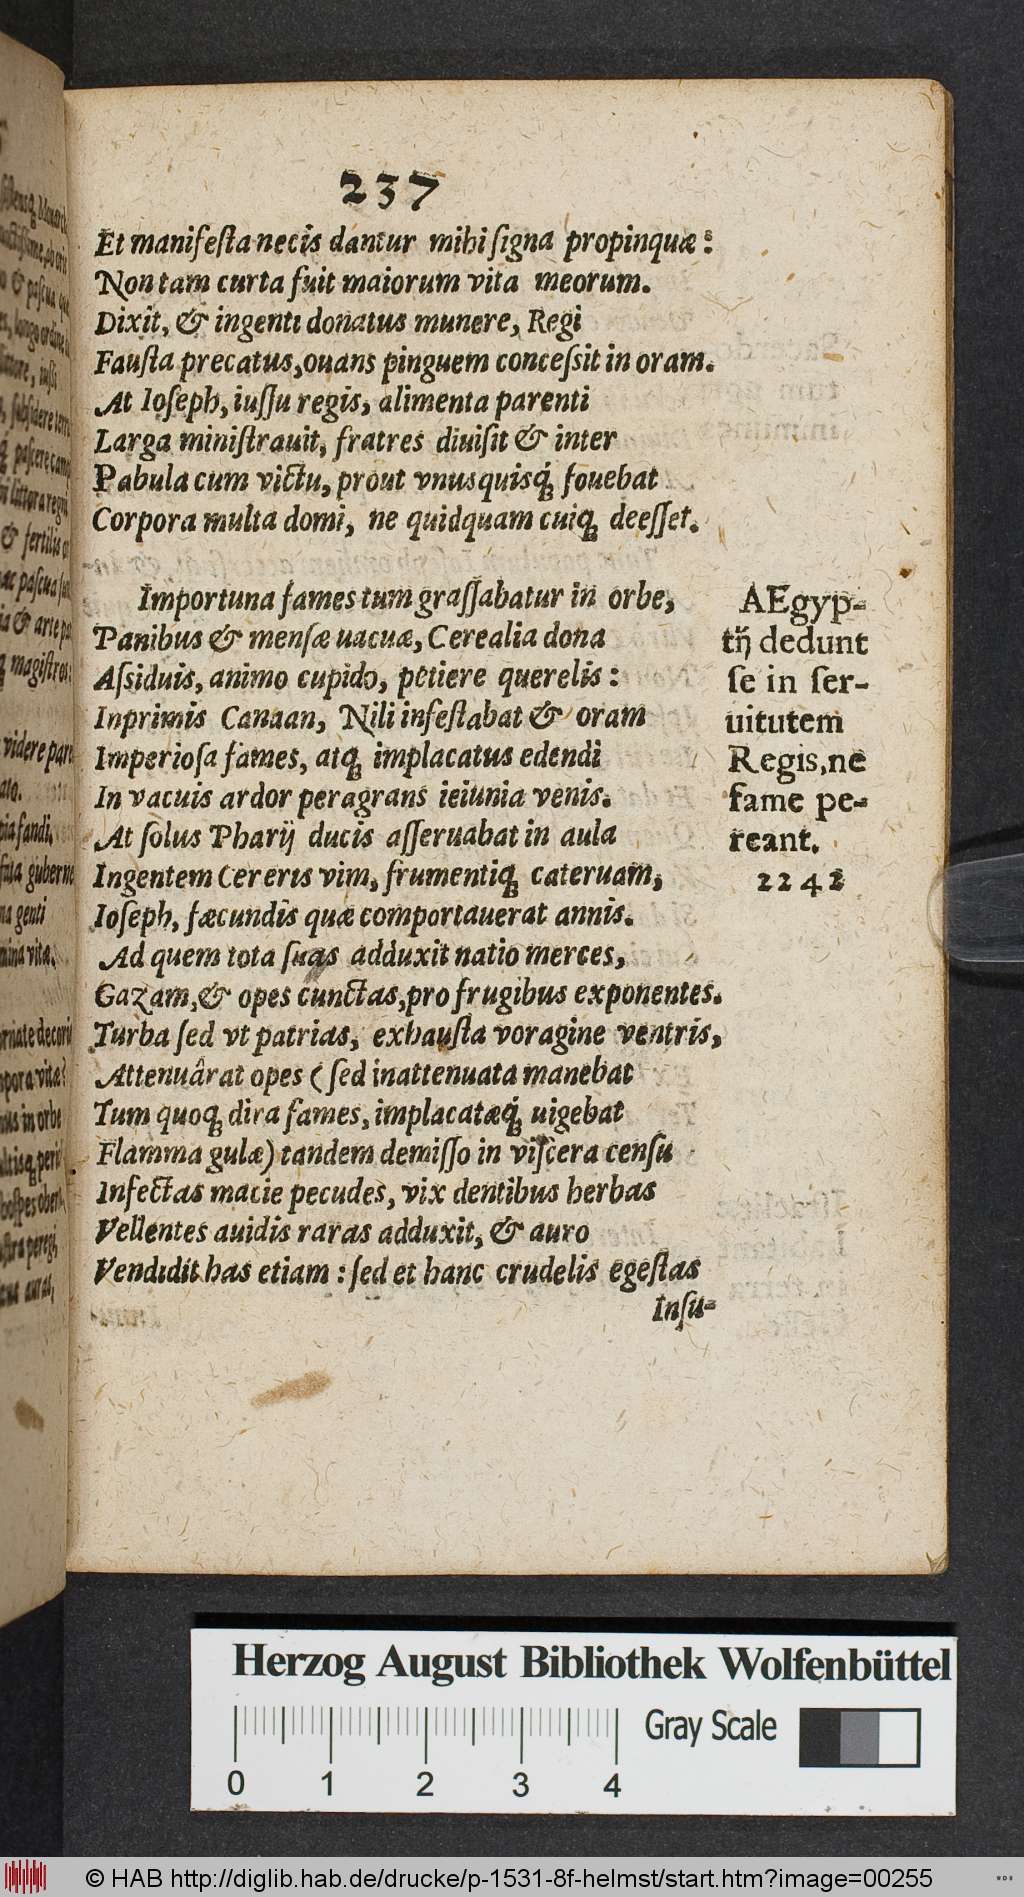 237
Et manifeſta necis dantur mihi ſigna propinquæ :
Non tam curta fuit maiorum vita meorum.
Dixit, & ingenti donatus munere, Regi
Fauſta precatus, ouans pinguem conceſsit in oram.
At Ioſeph, iuſſu regis, alimenta parenti
Larga miniſtrauit, fratres diuiſit & inter
Pabula cum victu, prout vnusquisq́; fouebat
Corpora multa domi, ne quidquam cuiq; deeſſet.
Importuna fames tum graſſabatur in orbe,
Panibus & menſæ uacuæ, Cerealia dona
Aſsiduis, animo cupido, petiere querelis :
Inprimis Canaan, Nili infeſtabat & oram
Imperioſa fames, atq; implacatus edendi
In vacuis ardor peragrans ieiunia venis.
At ſolus Pharij ducis aſſeruabat in aula
Ingentem Cereris vim, frumentiq; cateruam,
Ioſeph, fæcundis quæ comportauerat annis.
Ad quem tota ſuas adduxit natio merces,
Gazam, & opes cunctas, pro frugibus exponentes.
Turba ſed vt patrias, exhauſta voragine ventris,
Attenuârat opes ( ſed inattenuata manebat
Tum quoq; dira fames, implacatæq́; uigebat
Flamma gulæ) tandem demiſſo in viſcera cenſu
Infectas macie pecudes, vix dentibus herbas
Vellentes auidis raras adduxit, & auro
Vendidit has etiam : ſed et hanc crudelis egeſtas
Inſu-
AEgyp-
tĳ dedunt
ſe in ſer-
uitutem
Regis, ne
fame pe-
reant.
2242
Herzog August Bibliothek Wolfenbüttel
Gray Scale
0 1 2 3 4
© HAB http://diglib.hab.de/drucke/p-1531-8f-helmst/start.htm?image=00255